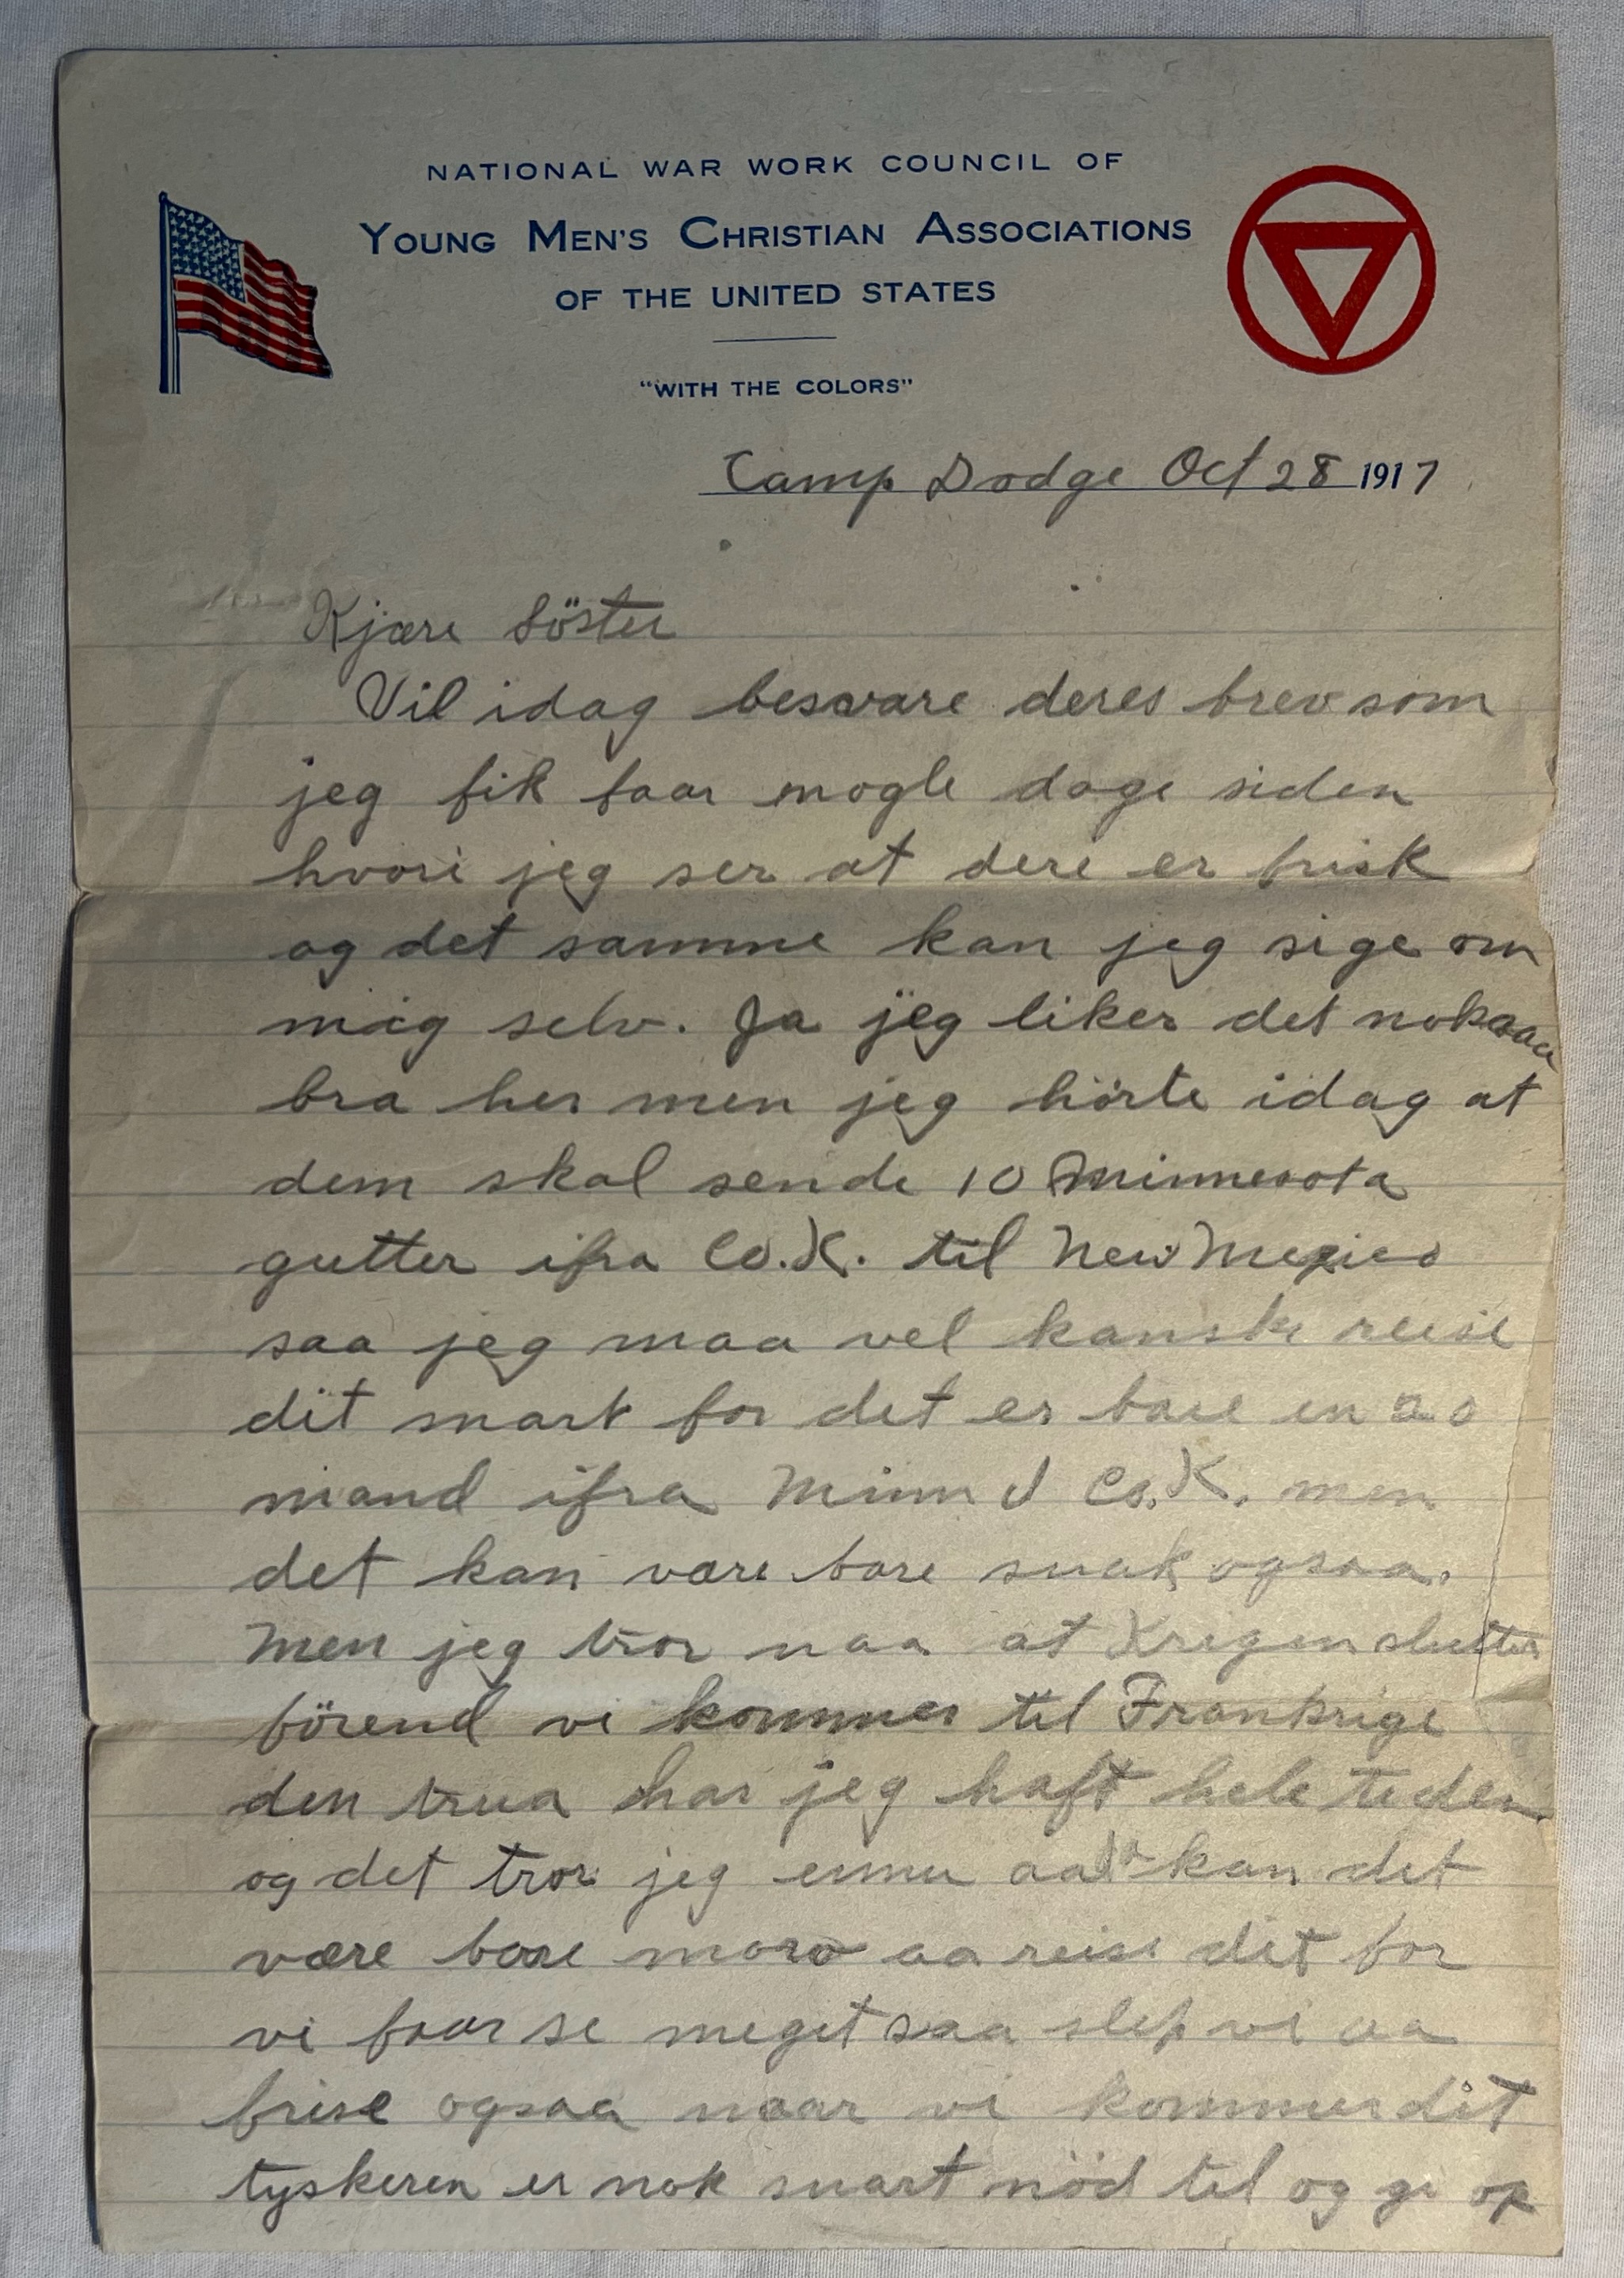 NATIONAL WAR WORK COUNCIL OF
YOUNG MEN'S CHRISTIAN ASSOCIATIONS
OF THE UNITED STATES
"WITH THE COLORS"
Camp Dodge Oct 28 1917
Kjære Söster
Vil idag besvare deres brev som
jeg fik faar nogle dage siden
hvori jeg ser at dere er frisk
og det samme kan jeg sige om
mig selv. Ja jeg liker det noksaa
bra her men jeg hörte idag at
dem skal sende 10 Minnesota
gutter ifra Co. K. til New Mexico
saa jeg maa vel kanske reise
dit snart for det er bare en 20
mand ifra Minn I Co. K. men
det kan være bare snak ogsaa.
Men jeg tror naa at Krigen slutter
förend vi kommer til Frankrige
den trua har jeg haft hele tiden
og det tror jeg ennu kan det
være bare moro aa reise dit for
vi faar se meget saa slep vi aa
frise ogsaa naar vi kommer dit
tyskeren er nok snart nöd til og gi op